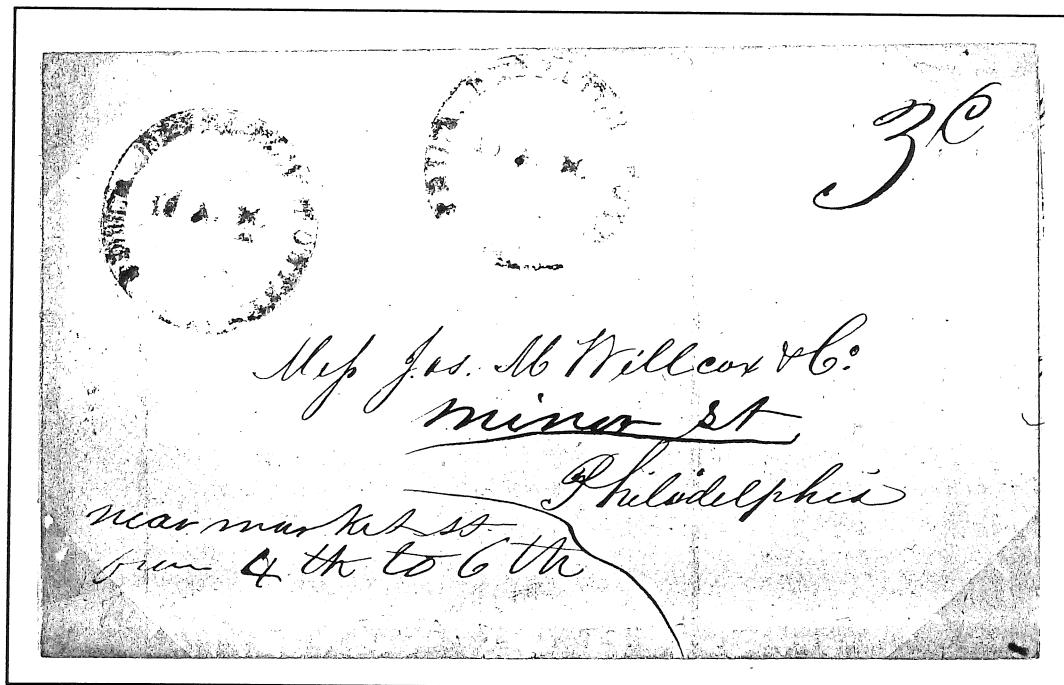 3c
Mess Jas. M Willcox & Co:
minor st
Philadelphia
near market st
from 4th to 6th